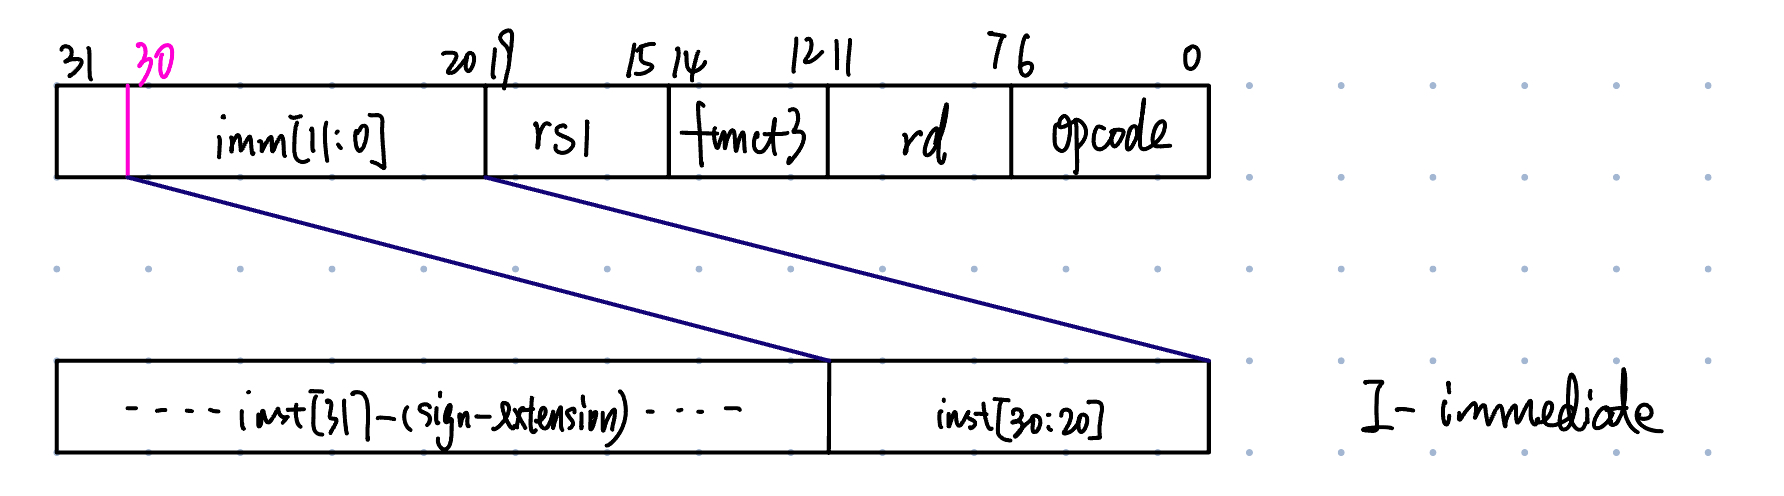 31 30 20 19 15 14 12 11 7 6 0
imm[11:0] rs1 funct3 rd opcode
---- inst[31]-(sign-extension) ---- inst[30:20] I-immediate